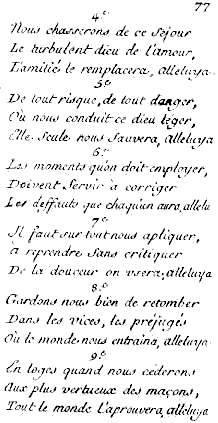 77
4e
Nous chasserons de ce Sejour
Le turbulent dieu de l'amour,
L'amitié le remplacera, alleluya.
5e
De tout risque, de tout danger,
Où nous conduit ce dieu léger,
Elle Seule nous Sauvera, alleluya
6e
Les moments qu'on doit employer,
Doivent Servir à corriger
Les deffauts que chaqu'un aura, allelu
7e
Il faut sur tout nous apliquer,
à reprendre Sans critiquer
De la douceur on usera, alleluya
8e
Gardons nous bien de retomber
Dans les vices, les préjugés
Où le monde nous entraina, alleluya
9e
En loges quand nous cederons
Aux plus vertueux des maçons,
Tout le monde l'aprouvera, alleluya